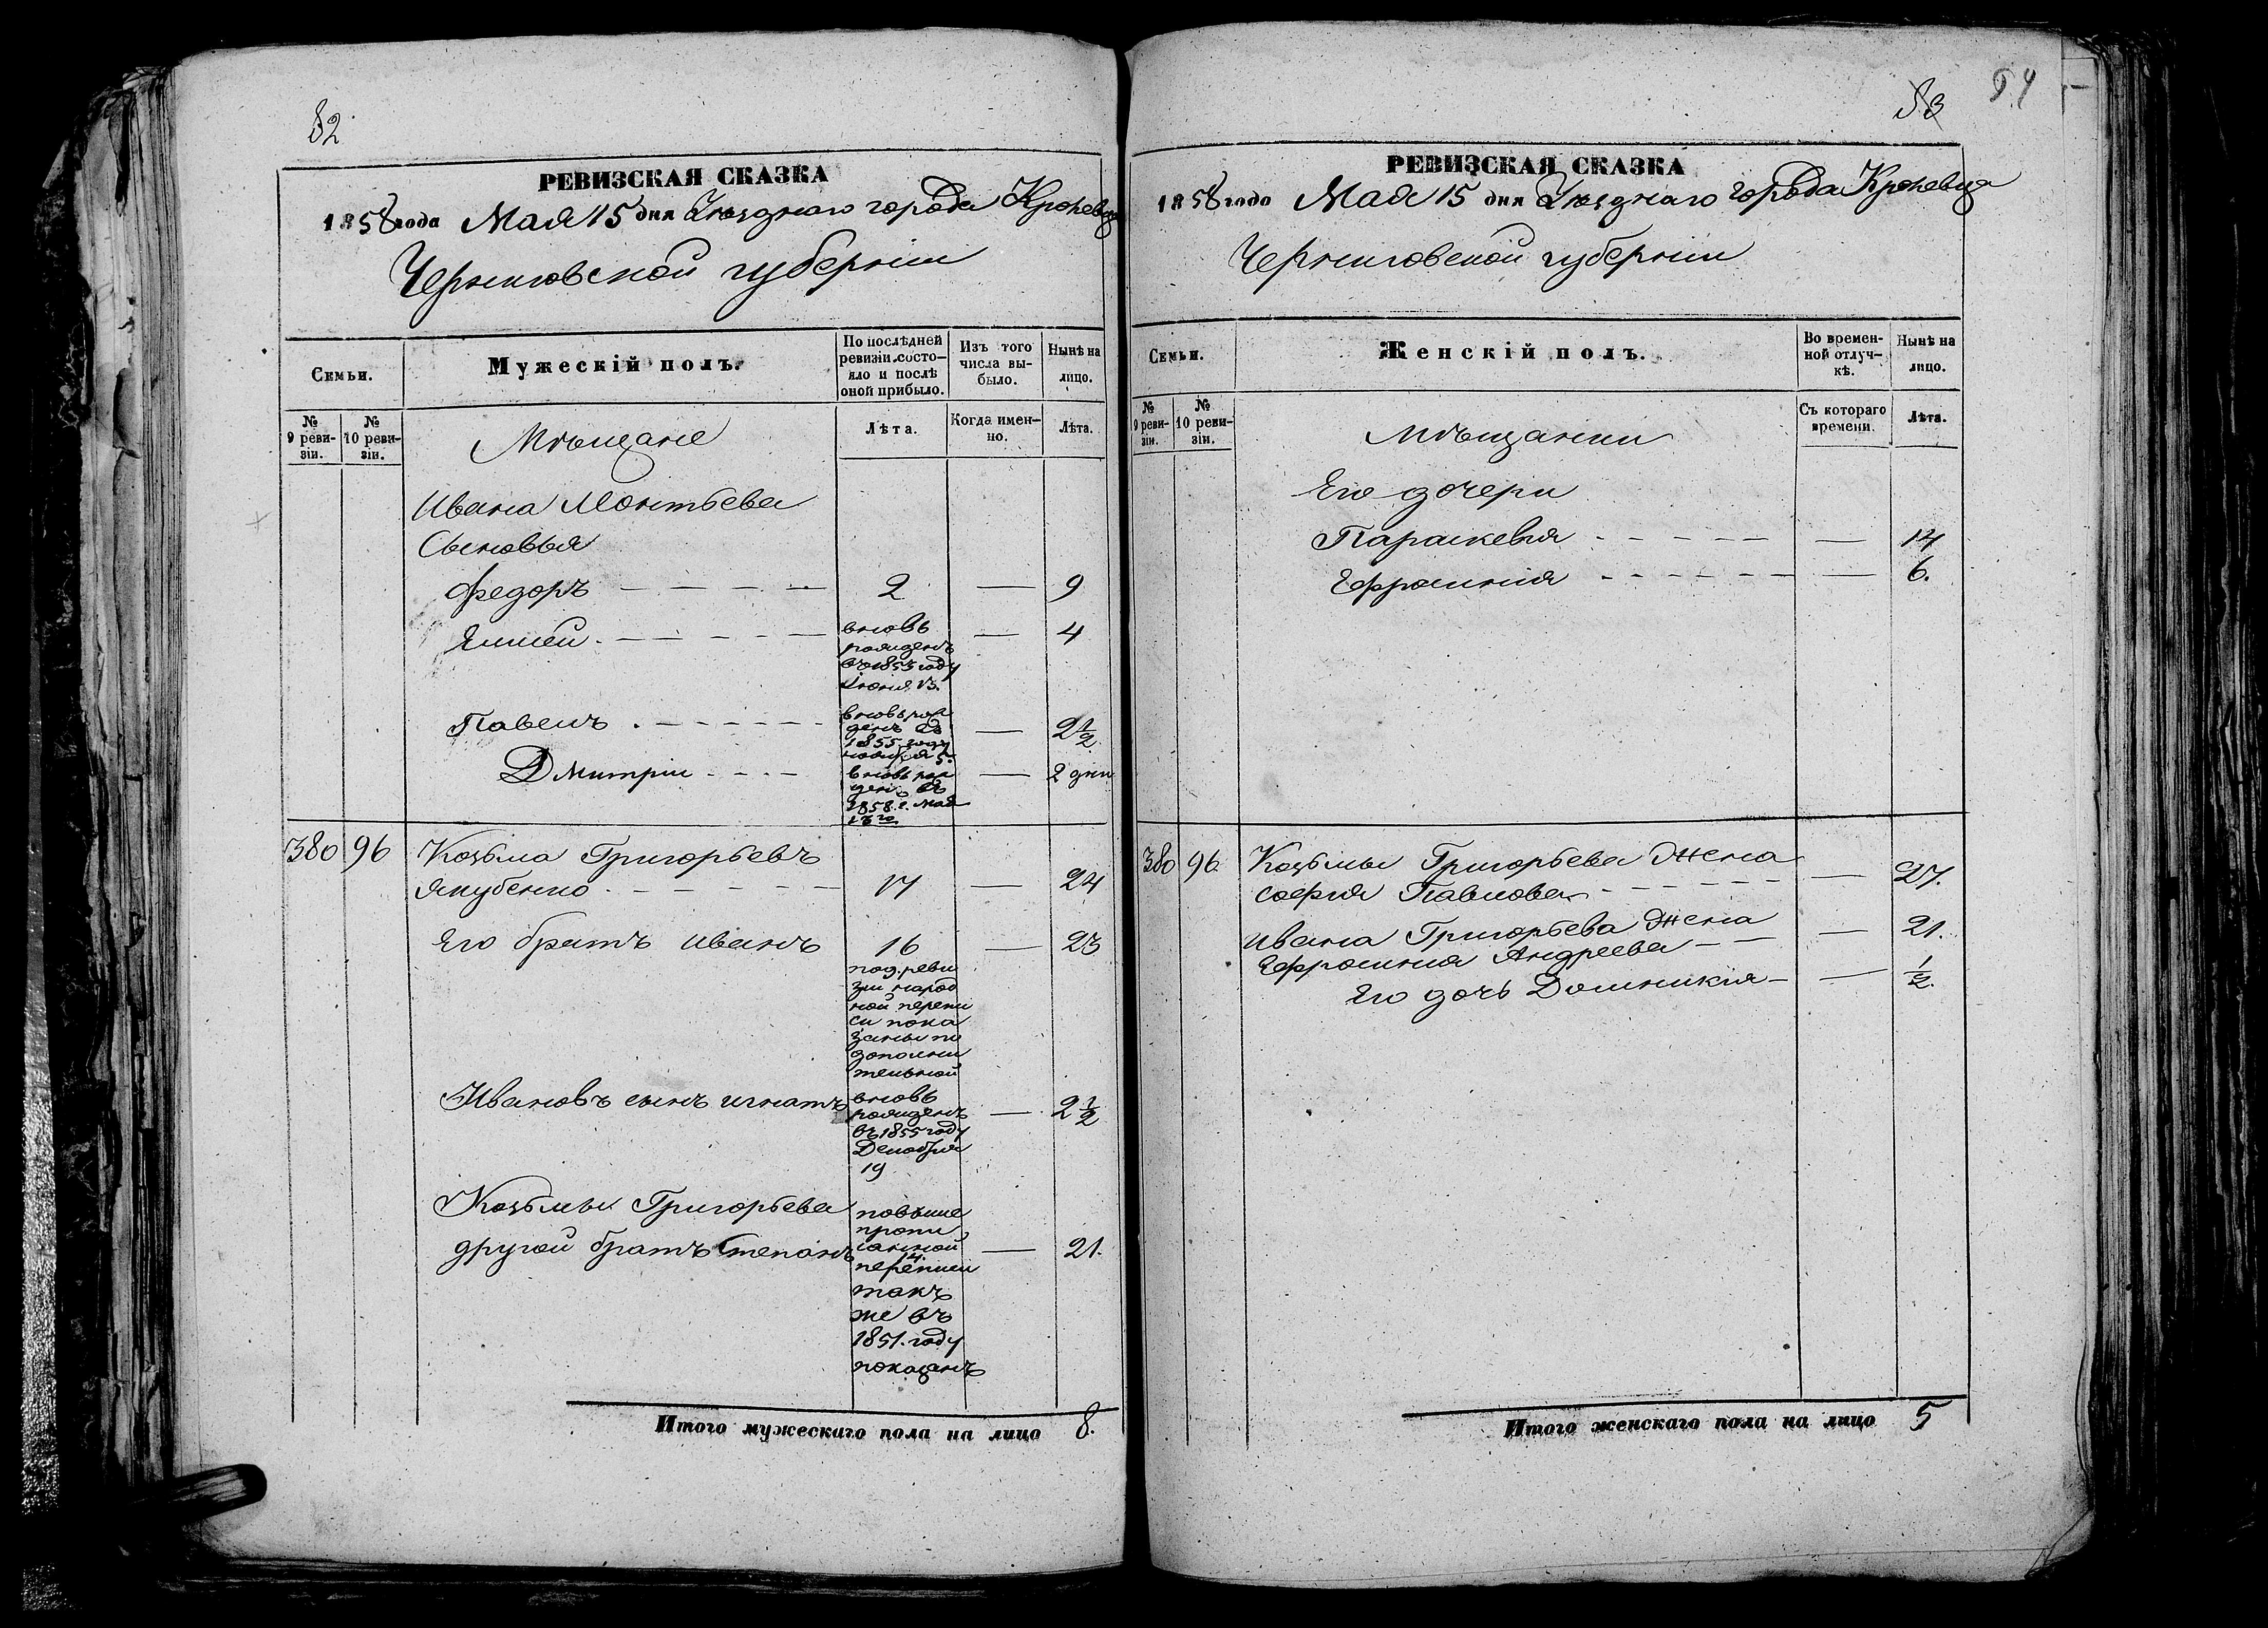 82
РЕВИЗСКАЯ СКАЗКА
1858 года Мая 15 дня Уѣзднаго города Кролевца
Черниговской губерніи
Семьи.
Мужескій полъ.
По послѣдней ревизіи состояло и послѣ оной прибыло.
Изъ того числа выбыло.
Нынѣ на лицо.
№ 9 ревизіи.
№ 10 ревизіи.
Мѣщане
Лѣта.
Когда именно.
Лѣта.
Ивана Леонтьева
Сыновья
Федоръ 2 — 9
Елисей вновь — 4
рожденъ
въ 1853 году
Іюня 13.
Павелъ вновь рож
денъ въ — 2 1/2
1855 году
ноября 5.
Дмитрій вновь рож — 2 дни
денъ въ
1858 г. Мая
13го
380 96 Козьма Григорьевъ
Якубенко 17 — 24
Его братъ Иванъ 16 — 23
под. реви
зіи народ
ной перепи
си пока
заны по
дополни
тельной
Ивановъ сынъ Игнатъ вновь
рожденъ — 2 1/2
въ 1855 году
Декабря
19
Козьмы Григорьева повыше
пропи
другой братъ Степанъ санной — 21.
14.
переписи
такъ
же въ
1851. году
показанъ
Итого мужескаго пола на лицо 8.
83
54
РЕВИЗСКАЯ СКАЗКА
1858 года Мая 15 дня Уѣзднаго города Кролевца
Черниговской губерніи
Семьи.
Женскій полъ.
Во временной отлучкѣ.
Нынѣ на лицо.
№ 9 ревизіи.
№ 10 ревизіи.
Мѣщанки
Съ котораго времени.
Лѣта.
Его дочери
Параскевія — 14
Ефросинія — 6.
380 96 Козьмы Григорьева жена
Софія Павлова — 27.
Ивана Григорьева жена
Ефросинія Андреева — 21.
Его дочь Домникія — 1/2.
Итого женскаго пола на лицо 5